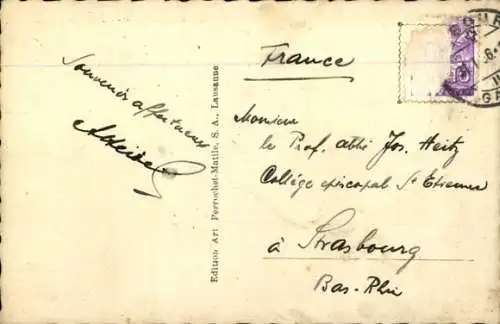 Souvenir affectueux
France
Monsieur
le Prof. abbé Jos. Heitz
Collège épiscopal St Etienne
à Strasbourg
Bas-Rhin
Edition Art Perrochet-Matile, S. A., Lausanne